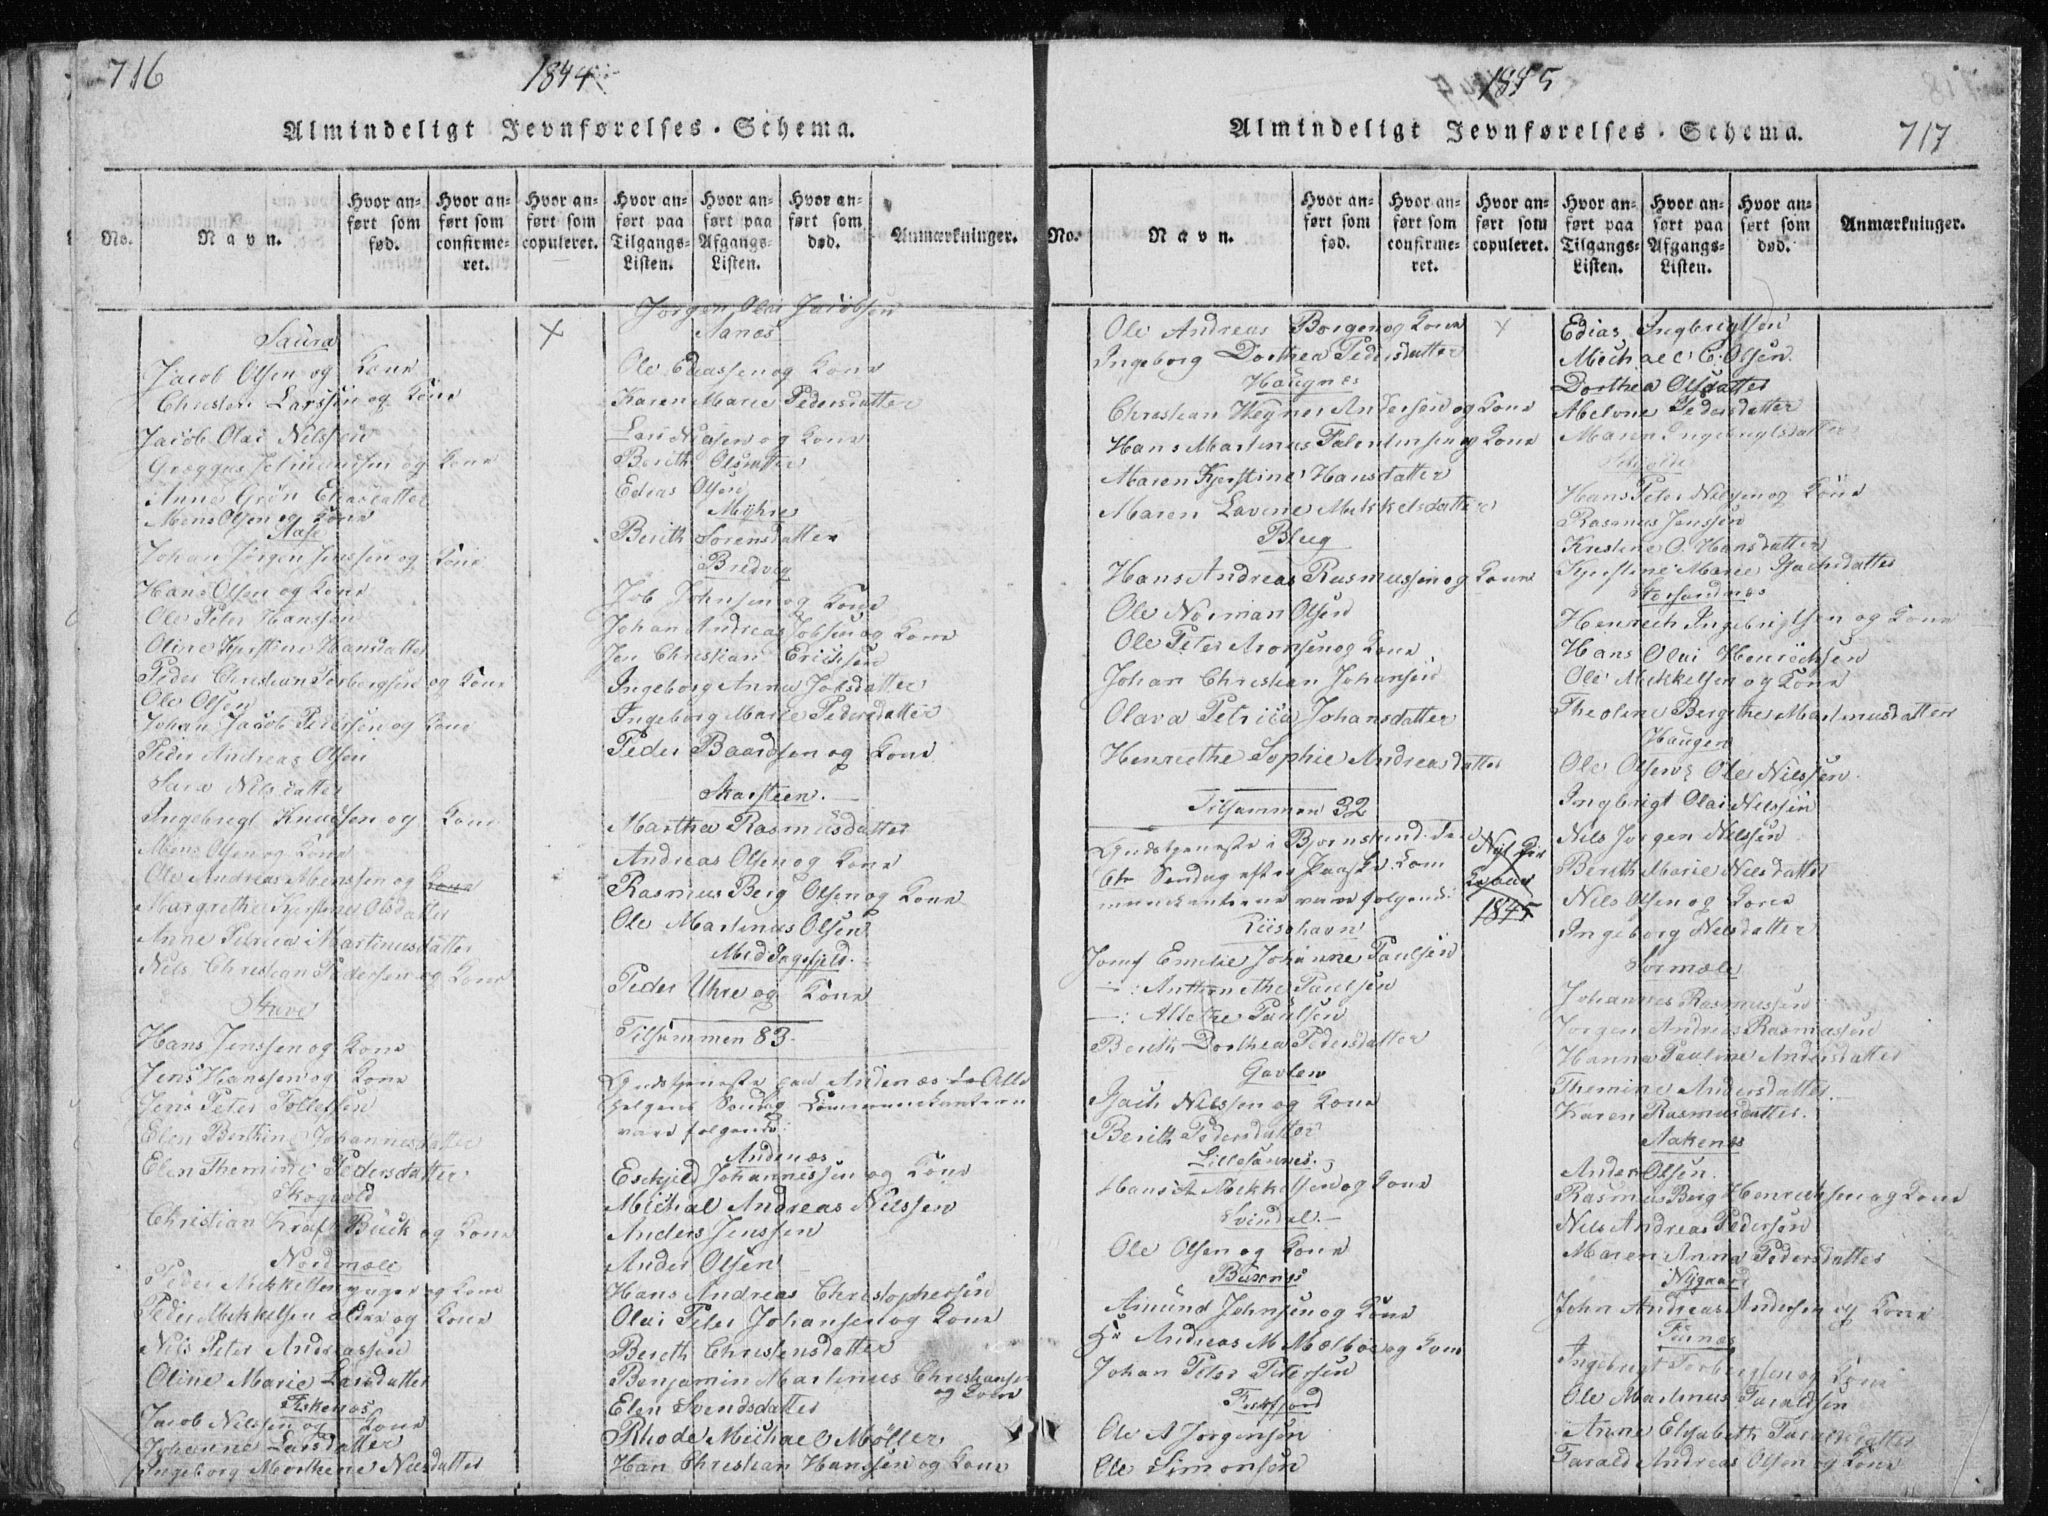 716
1844
Almindeligt Jevnførelses-Schema.
No.
Navn.
Hvor anført som fød.
Hvor anført som confirmeret.
Hvor anført som copuleret.
Hvor anført paa Tilgangs-Listen.
Hvor anført paa Afgangs-Listen.
Hvor anført som død.
Anmærkninger.
Saura
Jacob Olsen og Kone
Christen Larssen og Kone
Jacob Olai Nilssen
og Kone
Anne Grøn
Mons Olsen og Kone
Aase
Johan Jørgen Jenssen og Kone
Hans Olsen og Kone
Ole Peter Hanssen
Oline Kjerstine Hansdatter
Peder Christian Torbergsen og Kone
Ole Olsen
Johan Jacob Pedersen og Kone
Peder Andreas Olsen
Sara Nilsdatter
Ingebrigt Knudsen og Kone
Mons Olsen og Kone
Ole Andreas Monssen og Kone
Margrethe Kjerstine Olsdatter
Anne Petrea Martinusdatter
Nils Christian Pedersen og Kone
Stave
Hans Jenssen og Kone
Jens Hanssen og Kone
Jens Peter Tollefsen
Elen Berthine Johannesdatter
Elen Themine Pedersdatter
Skogvold
Christian Kraft Buck og Kone
Nordmæle
Peder Mikkelsen yngre og Kone
Peder Mekkelsen Eldre og Kone
Nils Peter Andreassen
Oline Marie Larsdatter
Fiskenæs
Jacob Nilssen og Kone
Johanne Larsdatter
Ingeborg Marthene Nilsdatter
Jørgen Olai Jacobsen
Aanes
Ole Eliassen og Kone
Karen Marie Pedersdatter
Lars og Kone
Berith Olsdatter
Edias Olsen
Myhre
Berith Sørensdatter
Bredvig
Job Johnsen og Kone
Johan Andreas Jobsen og Kone
Jen Christian Ericksen
Ingeborg Anna Jobsdatter
Ingeborg Marie Pedersdatter
Peder Baardsen og Kone
Skarsteen.
Martha Rasmusdatter
Andreas Olsen og Kone
Rasmus Berg Olsen og Kone
Ole Martinus Olsen
Middagsfjeld.
Peder Uhre og Kone
Tilsammen 83.
Gudstjeneste paa Andenæs Alle
Helgens Søndag Communicanterne
vare følgende:
Andenæs
Eschild Johannessen og Kone
Michal Andreas Nilssen
Anders Jenssen
Ander Olsen
Hans Andreas Christophersen
Olai Peter Johansen og Kone
Bereth Christensdatter
Benjamin Martinus Christiansen
og Kone
Elen Svendsdatter
Rhode Michael Møller
Han Christian Hanssen og Kone
1845
Almindeligt Jevnførelses-Schema.
717
No.
Navn.
Hvor anført som fød.
Hvor anført som confirmeret.
Hvor anført som copuleret.
Hvor anført paa Tilgangs-Listen.
Hvor anført paa Afgangs-Listen.
Hvor anført som død.
Anmærkninger.
Ole Andreas Borgen og Kone
Ingeborg Dorthea Pedersdatter
Haugnes
Christian Wegner Andersen og Kone
Hans Martinus Falentinsen og Kone
Maren Kjerstine Hansdatter
Maren Lavine Mekkelsdatter
Bleeg
Hans Andreas Rasmussen og Kone
Ole Norman Olsen
Ole Peter Aronsen og Kone
Johan Christian Johansen
Olava Petrica Johansdatter
Henriethe Sophie Andreasdatter
Tilsammen 32
Gudstjeneste i Bjørnskind
Søndag efter Paaske. Com
municanterne vare følgende:
1845
Riisøhavn
Jomf Emelie Johanne Paulsen
—: Anthonethe Paulsen
—: Alethe Paulsen
Berith Dorthea Pedersdatter
Gavlen
Isach Nilssen og Kone
Berith Pedersdatter
Hans A Mekkelsen og Kone
Svindal.
Ole Olsen og Kone
Buxnes
Amund Johnsen og Kone
Hr Andreas M Mælbøe og Kone
Johan Peter Petersen
Fiskfjord
Ole A Jørgensen
Ole Simonsen
Edias Ingbrigtsen
Michael C. Olsen
Dorthea Olsdatter
Abelone Pedersdatter
Maren Ingebrigtsdatter
Hans Peter Nilssen og Kone
Rasmus Jenssen
Kristine O. Hansdatter
Kjerstine Marie Isachsdatter
Steisandnes
Henrich Ingebrigtsen og Kone
Hans Olai Henrichsen
Ole Mekkelsen og Kone
Theoline Bergithe Martinusdatter
Haugen
Ole Olsen & Ole Nilssen
Ingbrigt Olai Nilssen
Nils Jørgen Nilssen
Berith Marie Nilsdatter
Nils Olsen og Kone
Ingeborg Nilsdatter
Sørmæle
Johannes Rasmussen
Jørgen Andreas Rasmussen
Hanna Pauline Andersdatter
Themine Andersdatter
Karen Rasmusdatter.
Aakenes
Ander Olsen.
Rasmus Berg Henriksen og Kone
Nils Andreas Pedersen
Maren Anna Pedersdatter
Nygaard
John Andreas Andersen og Kone
Ingebrigt Torbergsen og Kone
Ole Martinus Taraldsen
Anne Elisabeth Taraldsdatter
Tarald Andreas Olsen og Kone